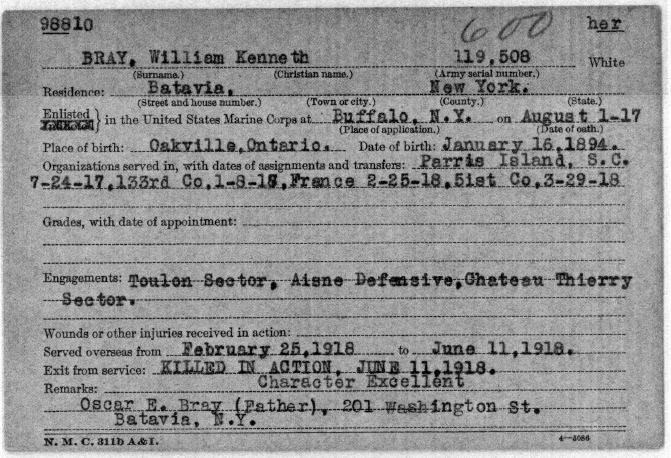 98810 600 her
BRAY, William Kenneth 119,508 White
(Surname.) (Christian name.) (Army serial number.)
Residence: Batavia, New York.
(Street and house number.) (Town or city.) (County.) (State.)
Enlisted } in the United States Marine Corps at Buffalo, N.Y. on August 1-17
(Place of application.) (Date of oath.)
Place of birth: Oakville, Ontario. Date of birth: January 16, 1894.
Organizations served in, with dates of assignments and transfers: Parris Island, S.C.
7-24-17, 133rd Co, 1-8-18, France 2-25-18, 51st Co, 3-29-18
Grades, with date of appointment:
Engagements: Toulon Sector, Aisne Defensive, Chateau Thierry
Sector.
Wounds or other injuries received in action:
Served overseas from February 25, 1918 to June 11, 1918.
Exit from service: KILLED IN ACTION, JUNE 11, 1918.
Remarks: Character Excellent
Oscar E. Bray (Father), 201 Washington St.
Batavia, N.Y.
N. M. C. 311b A&I. 4—5086